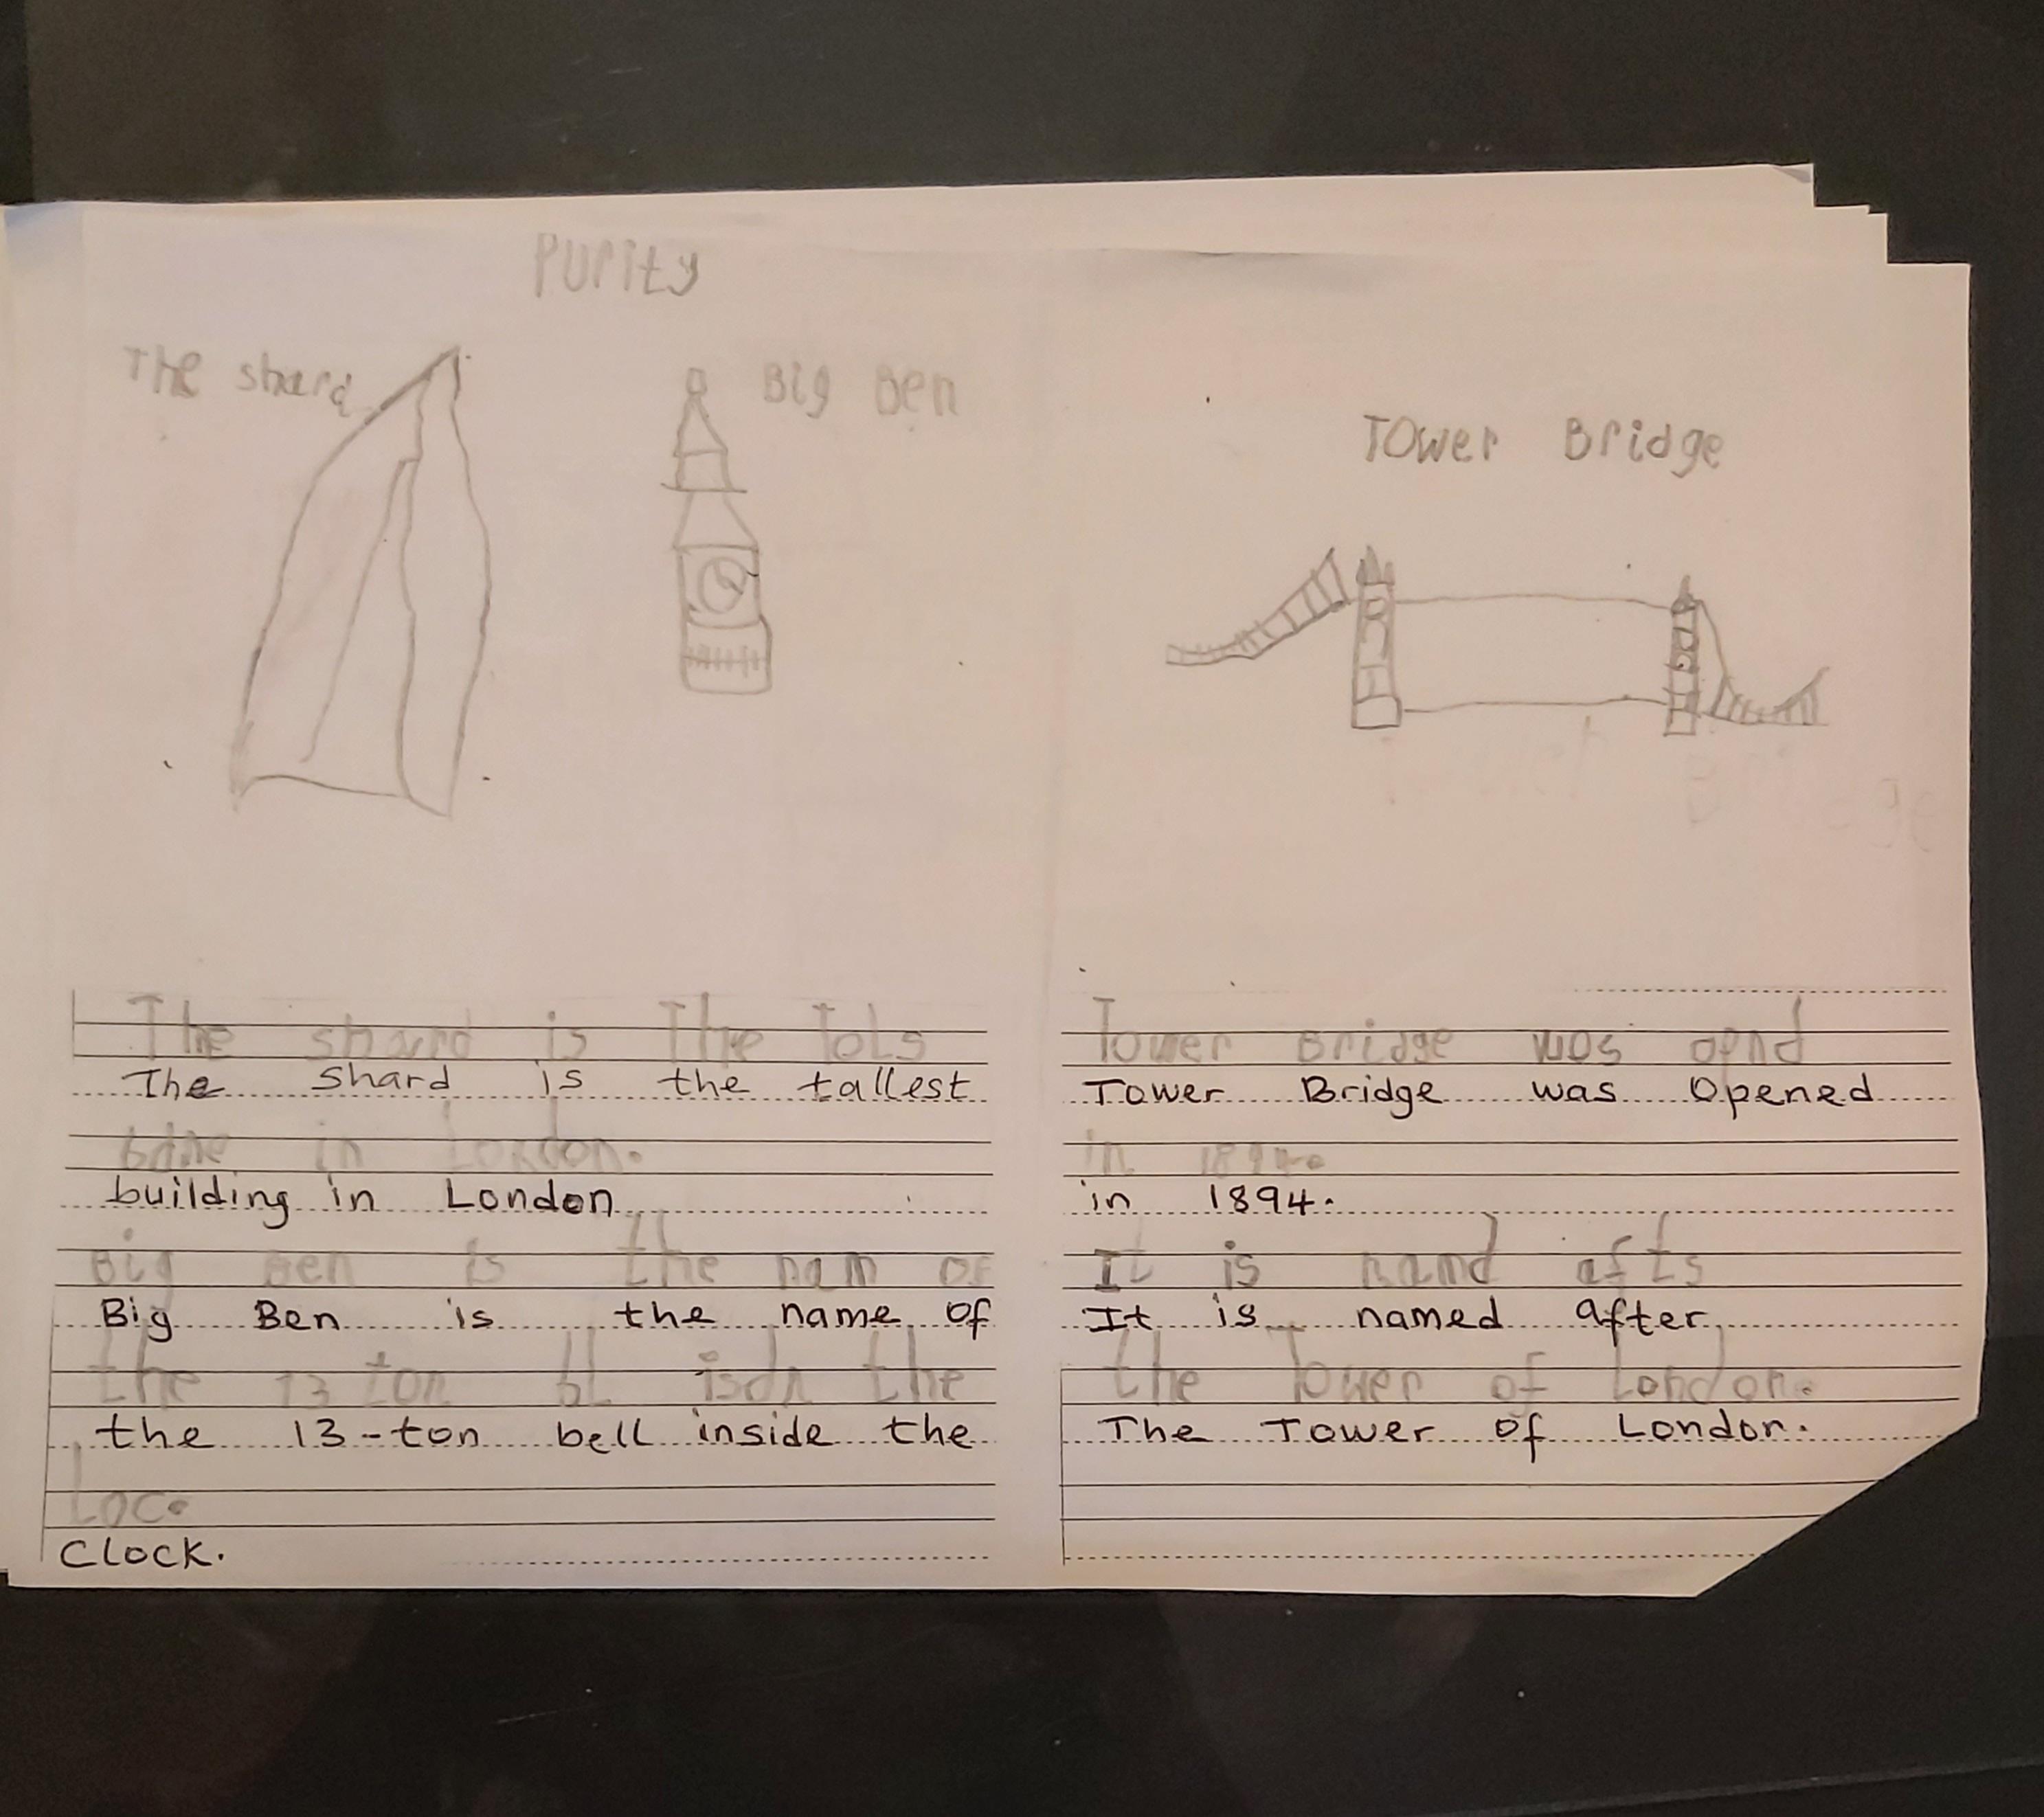 Purity
The shard
Big Ben
The shard is The Tols
The Shard is the tallest
in London.
building in London
Big Ben is the nam of
Big Ben is the name of
the 13 ton bL isdn the
the 13-ton bell inside the
Loc.
Clock.
Tower Bridge
Tower Bridge was opnd
Tower Bridge was Opened
in 1894.
in 1894.
It is namd afts
It is named after
the Tower of London.
The Tower of London.